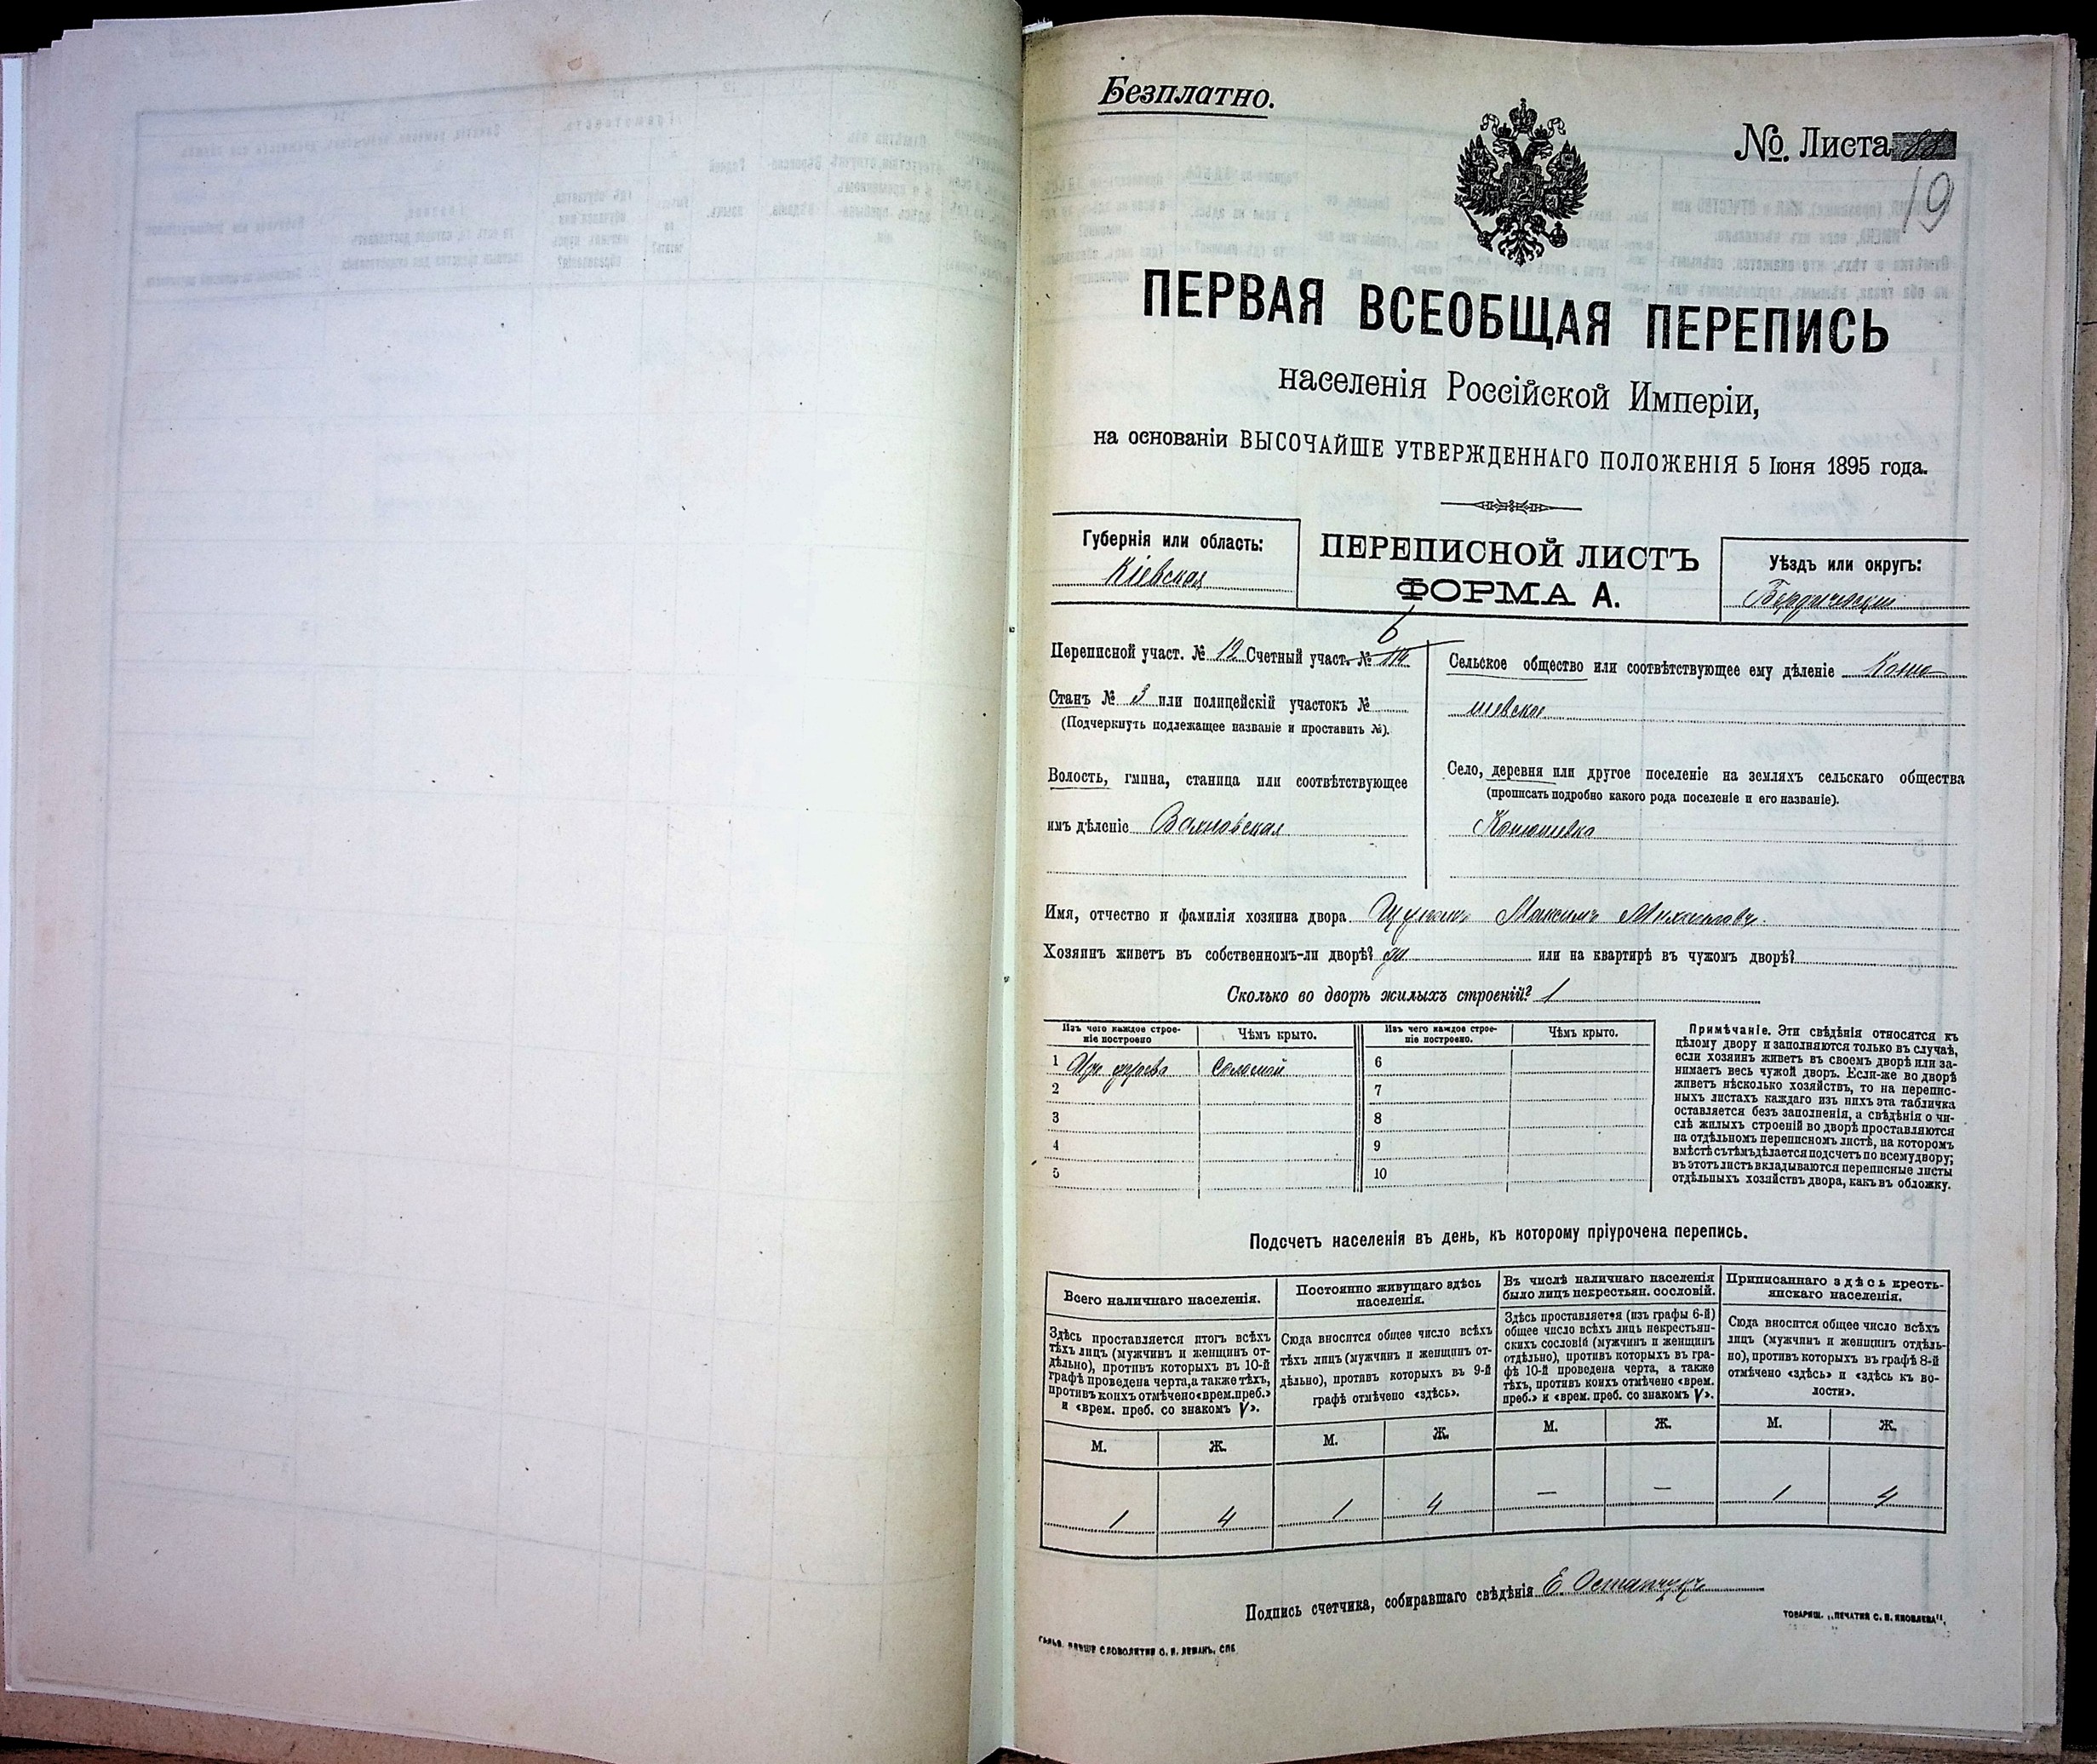 Безплатно.
№ Листа
19
ПЕРВАЯ ВСЕОБЩАЯ ПЕРЕПИСЬ
населенія Россійской Имперіи,
на основаніи ВЫСОЧАЙШЕ УТВЕРЖДЕННАГО ПОЛОЖЕНІЯ 5 Іюня 1895 года.
Губернія или область:
Кіевская
ПЕРЕПИСНОЙ ЛИСТЪ
ФОРМА А.
Уѣздъ или округъ:
Бердичевскій
6
Переписной участ. № 12 Счетный участ. №
Станъ № 3 или полицейскій участокъ №
(Подчеркнуть подлежащее названіе и проставить №).
Волость, гмина, станица или соотвѣтствующее
имъ дѣленіе Вахновская
Сельское общество или соотвѣтствующее ему дѣленіе Коню
шевское
Село, деревня или другое поселеніе на земляхъ сельскаго общества
(прописать подробно какого рода поселеніе и его названіе).
Конюшевка
Имя, отчество и фамилія хозяина двора. Максимъ
Хозяинъ живетъ въ собственномъ-ли дворѣ? да или на квартирѣ въ чужомъ дворѣ?
Сколько во дворѣ жилыхъ строеній? 1
Изъ чего каждое строе-
ніе построено
Чѣмъ крыто.
Изъ чего каждое строе-
ніе построено.
Чѣмъ крыто.
1 Изъ дерева Соломой 6
2 7
3 8
4 9
5 10
Примѣчаніе. Эти свѣдѣнія относятся къ
цѣлому двору и заполняются только въ случаѣ,
если хозяинъ живетъ въ своемъ дворѣ или за-
нимаетъ весь чужой дворъ. Если-же во дворѣ
живетъ нѣсколько хозяйствъ, то на перепис-
ныхъ листахъ каждаго изъ нихъ эта табличка
оставляется безъ заполненія, а свѣдѣнія о чи-
слѣ жилыхъ строеній во дворѣ проставляются
на отдѣльномъ переписномъ листѣ, на которомъ
вмѣстѣ съ тѣмъ дѣлается подсчетъ по всему двору;
въ этотъ листъ вкладываются переписные листы
отдѣльныхъ хозяйствъ двора, какъ въ обложку.
Подсчетъ населенія въ день, къ которому пріурочена перепись.
Всего наличнаго населенія.
Здѣсь проставляется итогъ всѣхъ
тѣхъ лицъ (мужчинъ и женщинъ от-
дѣльно), противъ которыхъ въ 10-й
графѣ проведена черта, а также тѣхъ,
противъ коихъ отмѣчено «врем. преб.»
и «врем. преб. со знакомъ V».
Постоянно живущаго здѣсь
населенія.
Сюда вносится общее число всѣхъ
тѣхъ лицъ (мужчинъ и женщинъ от-
дѣльно), противъ которыхъ въ 9-й
графѣ отмѣчено «здѣсь».
Въ числѣ наличнаго населенія
было лицъ некрестьян. сословій.
Здѣсь проставляется (изъ графы 6-й)
общее число всѣхъ лицъ некрестьян-
скихъ сословій (мужчинъ и женщинъ
отдѣльно), противъ которыхъ въ гра-
фѣ 10-й проведена черта, а также
тѣхъ, противъ коихъ отмѣчено «врем.
преб.» и «врем. преб. со знакомъ V».
Приписаннаго здѣсь кресть-
янскаго населенія.
Сюда вносится общее число всѣхъ
лицъ (мужчинъ и женщинъ отдѣль-
но), противъ которыхъ въ графѣ 8-й
отмѣчено «здѣсь» и «здѣсь къ во-
лости».
М. Ж. М. Ж. М. Ж. М. Ж.
1 4 1 4 — — 1 4
Подпись счетчика, собиравшаго свѣдѣнія Е Остапчукъ
ТОВАРИЩ. „ПЕЧАТНЯ С. П. ЯКОВЛЕВА“.
СЛОВОЛИТНЯ О. И. ЛЕМАНЪ, СПБ